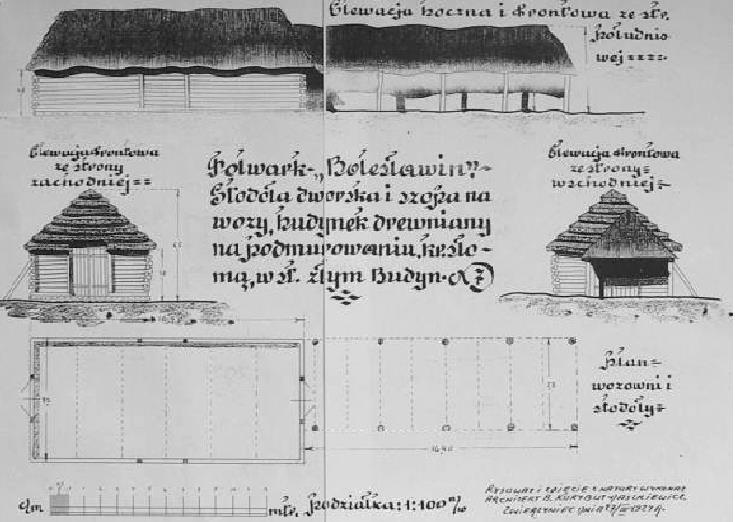 Elewacja boczna i frontowa ze str.
południo
wej====
Elewacja frontowa
ze strony
zachodniej==
Folwark-„Bolesławin"-
Stodoła dworska i szopa na
wozy, budynek drewniany
na podmurowaniu, kr. sło-
mą, w st. złym Budyn. № 7
Elewacja frontowa
ze strony=
wschodniej=
Plan=
wozowni i
stodoły=
1690
c/m
mtr. Podziałka: 1:100
Rysował i zdjęcie z natury wykonał
Architekt B.